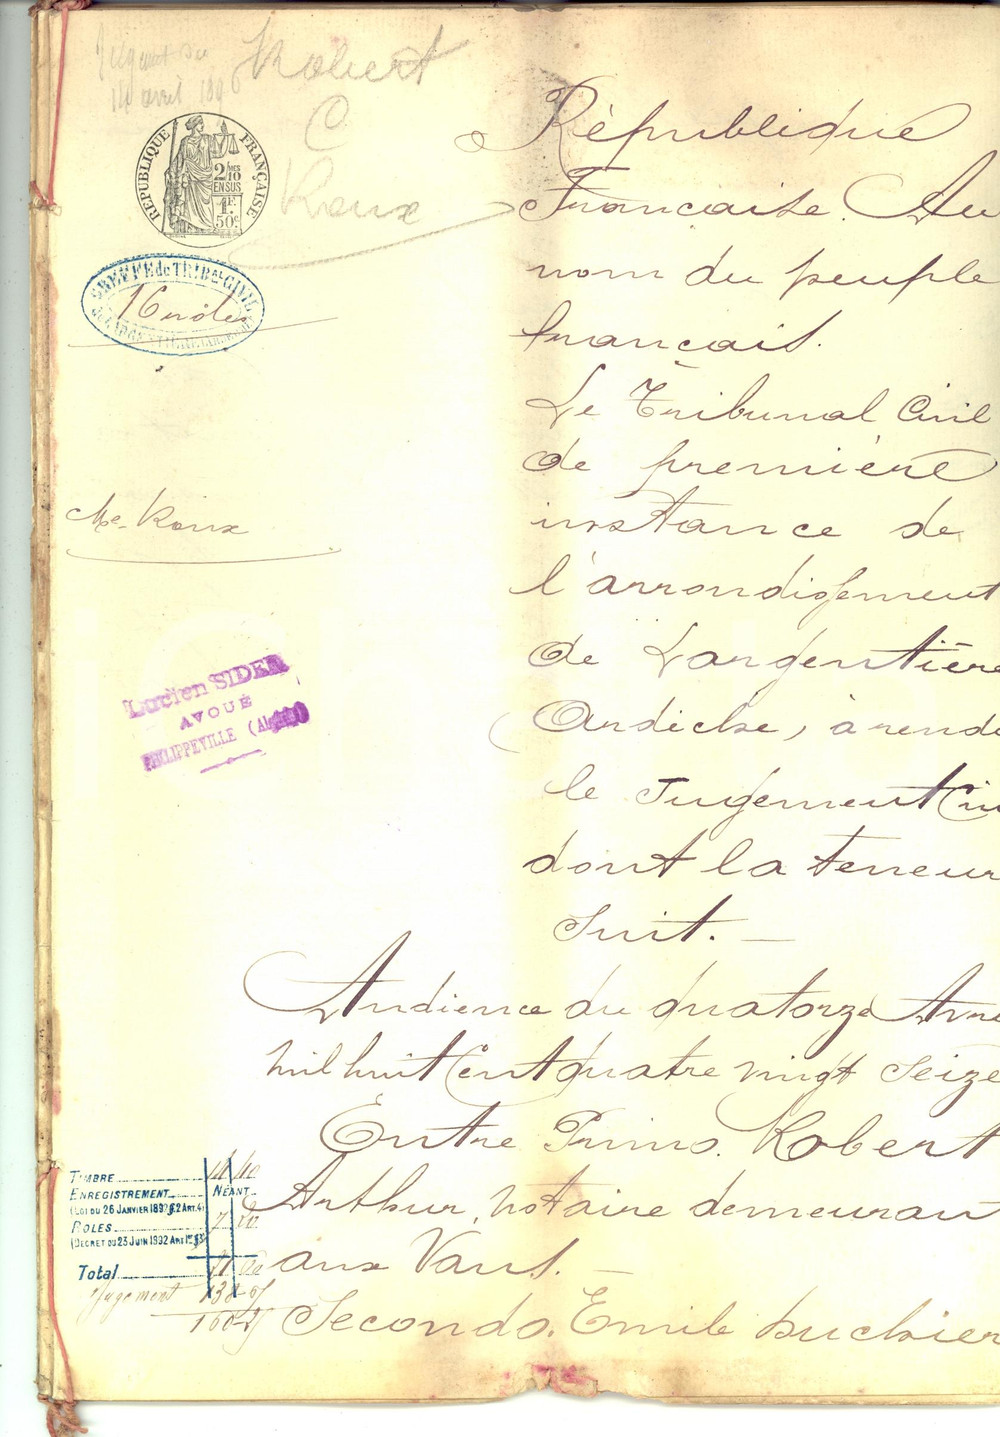 Jugement du
14 avril 1896
Robert
C
Roux
RÉPUBLIQUE FRANÇAISE
2/10 EN SUS
1F. 50c
GREFFE du TRIBAL CIVIL
16 rôles
Me Roux
Lucien SIDER
AVOUÉ
PHILIPPEVILLE (Algérie)
République
Française. Au
nom du peuple
français.
Le Tribunal Civil
de première
instance de
l'arrondissement
de Largentière
(Ardèche, a rendu
le Jugement
dont la teneur
Suit. —
Audience du quatorze Avril
mil huit Cent quatre vingt Seize
Entre Primo. Robert
Arthur, notaire demeurant
aux Vans. —
Secondo. Emile
TIMBRE
ENREGISTREMENT NÉANT
(LOI DU 26 JANVIER 1892 § 2 ART. 4)
ROLES
(DECRET DU 23 JUIN 1892 ART 1er § 3)
Total
Jugement